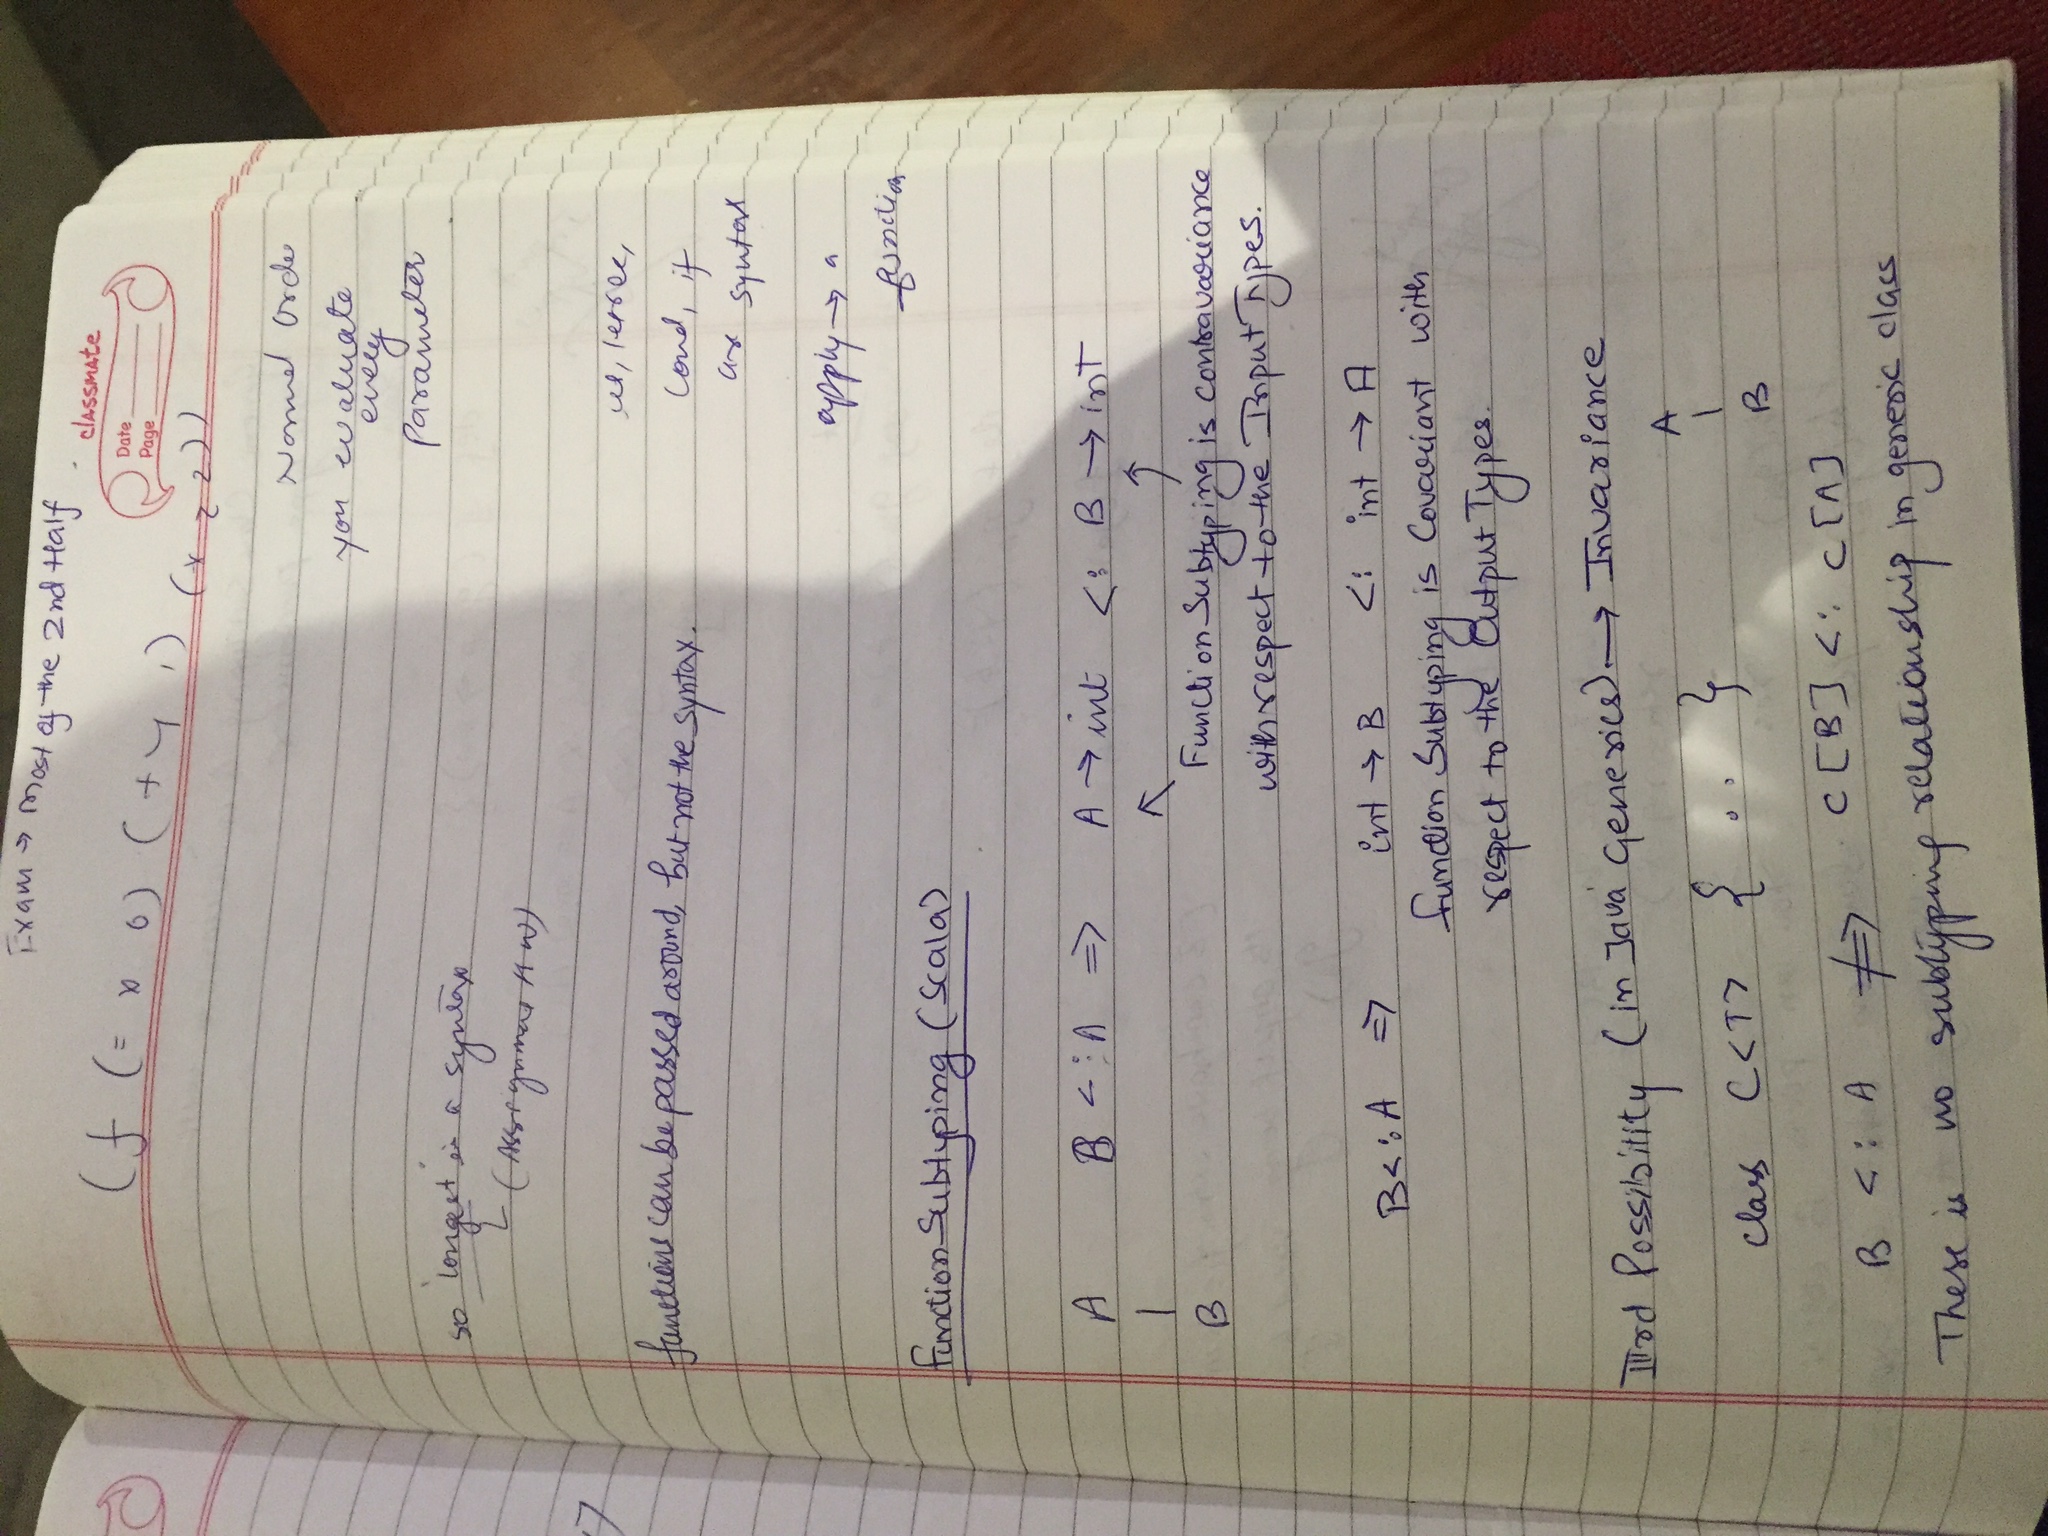 Exam → Most of the 2nd Half
classmate
Date
Page
(f (= x 0) (+ y 1) (* z 2))
Normal Orde
you evaluate
every
Parameter
so longest is a syntax
(Assignment HW)
cond, if
are syntax
functions can be passed around, but not the syntax.
apply → a
function
Function Subtyping (Scala)
A B <: A => A → int <: B → int
|
B
Function Subtyping is contravariance
with respect to the Input Types.
B <: A => int → B <: int → A
function Subtyping is Covariant with
respect to the Output Types.
IIIrd Possibility (in Java Generics) → Invariance
class C<T> { .. } A
|
B
B <: A ≠> C[B] <: C[A]
There is no subtyping relationship in generic class
17